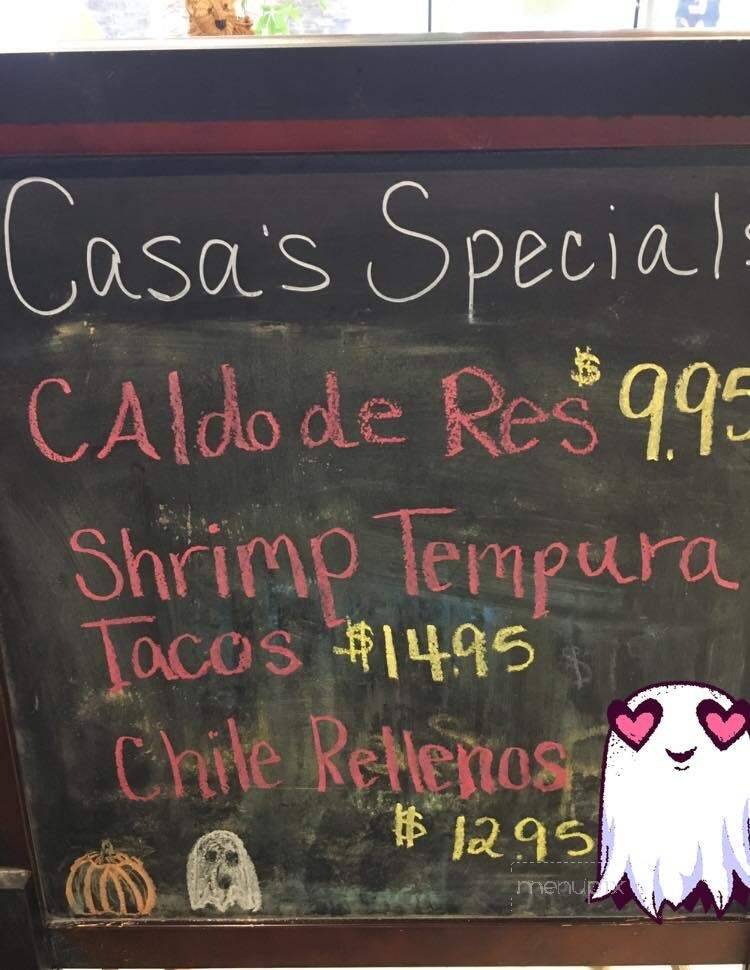 Casa's Specials
CAldo de Res $9.95
Shrimp Tempura
Tacos $14.95
Chile Rellenos
$12.95
menupix